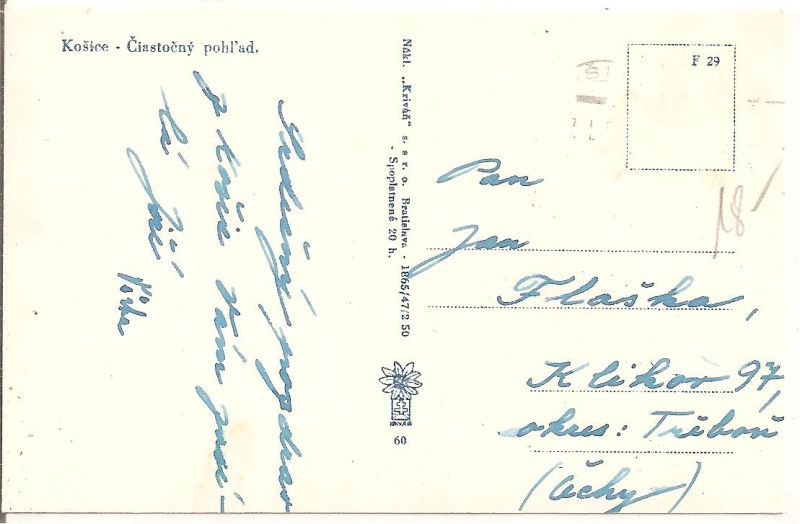 Košice - Čiastočný pohľad.
Srdečný pozdrav
z Košic Vám posí-
lá
Nákl. „Kriváň“ s. s r. o. Bratislava - 1865/47/2 50
- Spoplatnené 20 h.
KRIVÁŇ
60
F 29
18
Pan
Jan
Flaška,
Klikov 97,
okres: Třeboň
(Čechy)